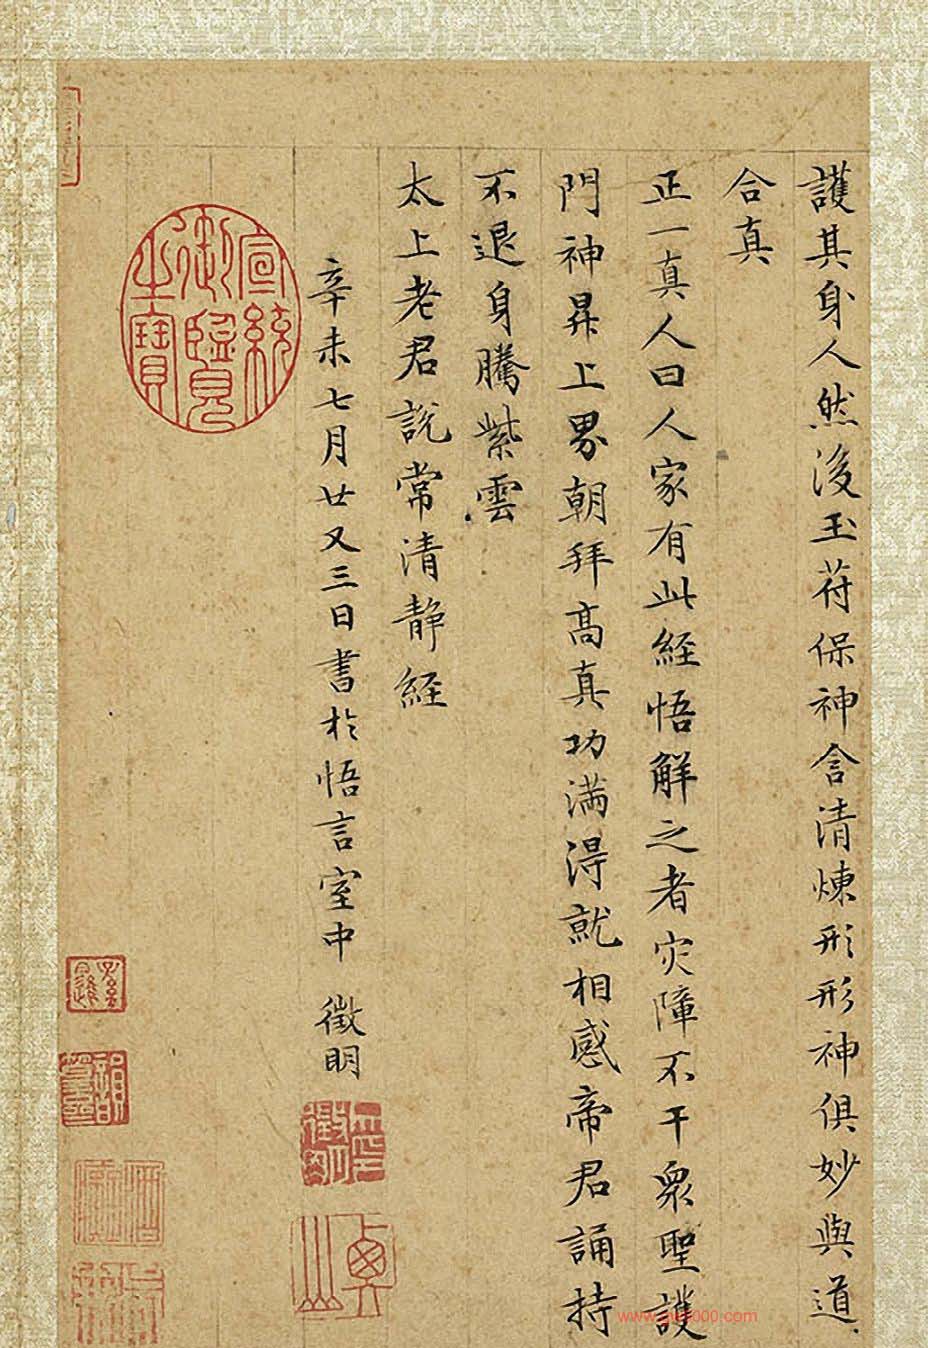 護其身人然後玉苻保神含清煉形形神俱妙與道
合真
正一真人曰人家有此經悟解之者灾障不干衆聖護
門神昇上界朝拜高真功満淂就相感帝君誦持
不退身騰紫雲
太上老君說常清静經
辛未七月廿又三日書於悟言室中 徵明
宣統
御覽
之寶